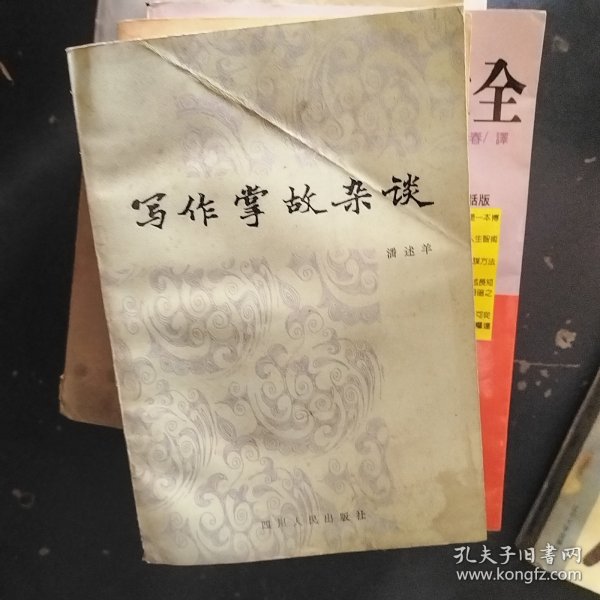 写作掌故杂谈
潘述羊
四川人民出版社
全
春/譯
話版
一本博
人生智術
謀方法
成長短
之
可從
孔夫子旧书网
www.kongfz.com